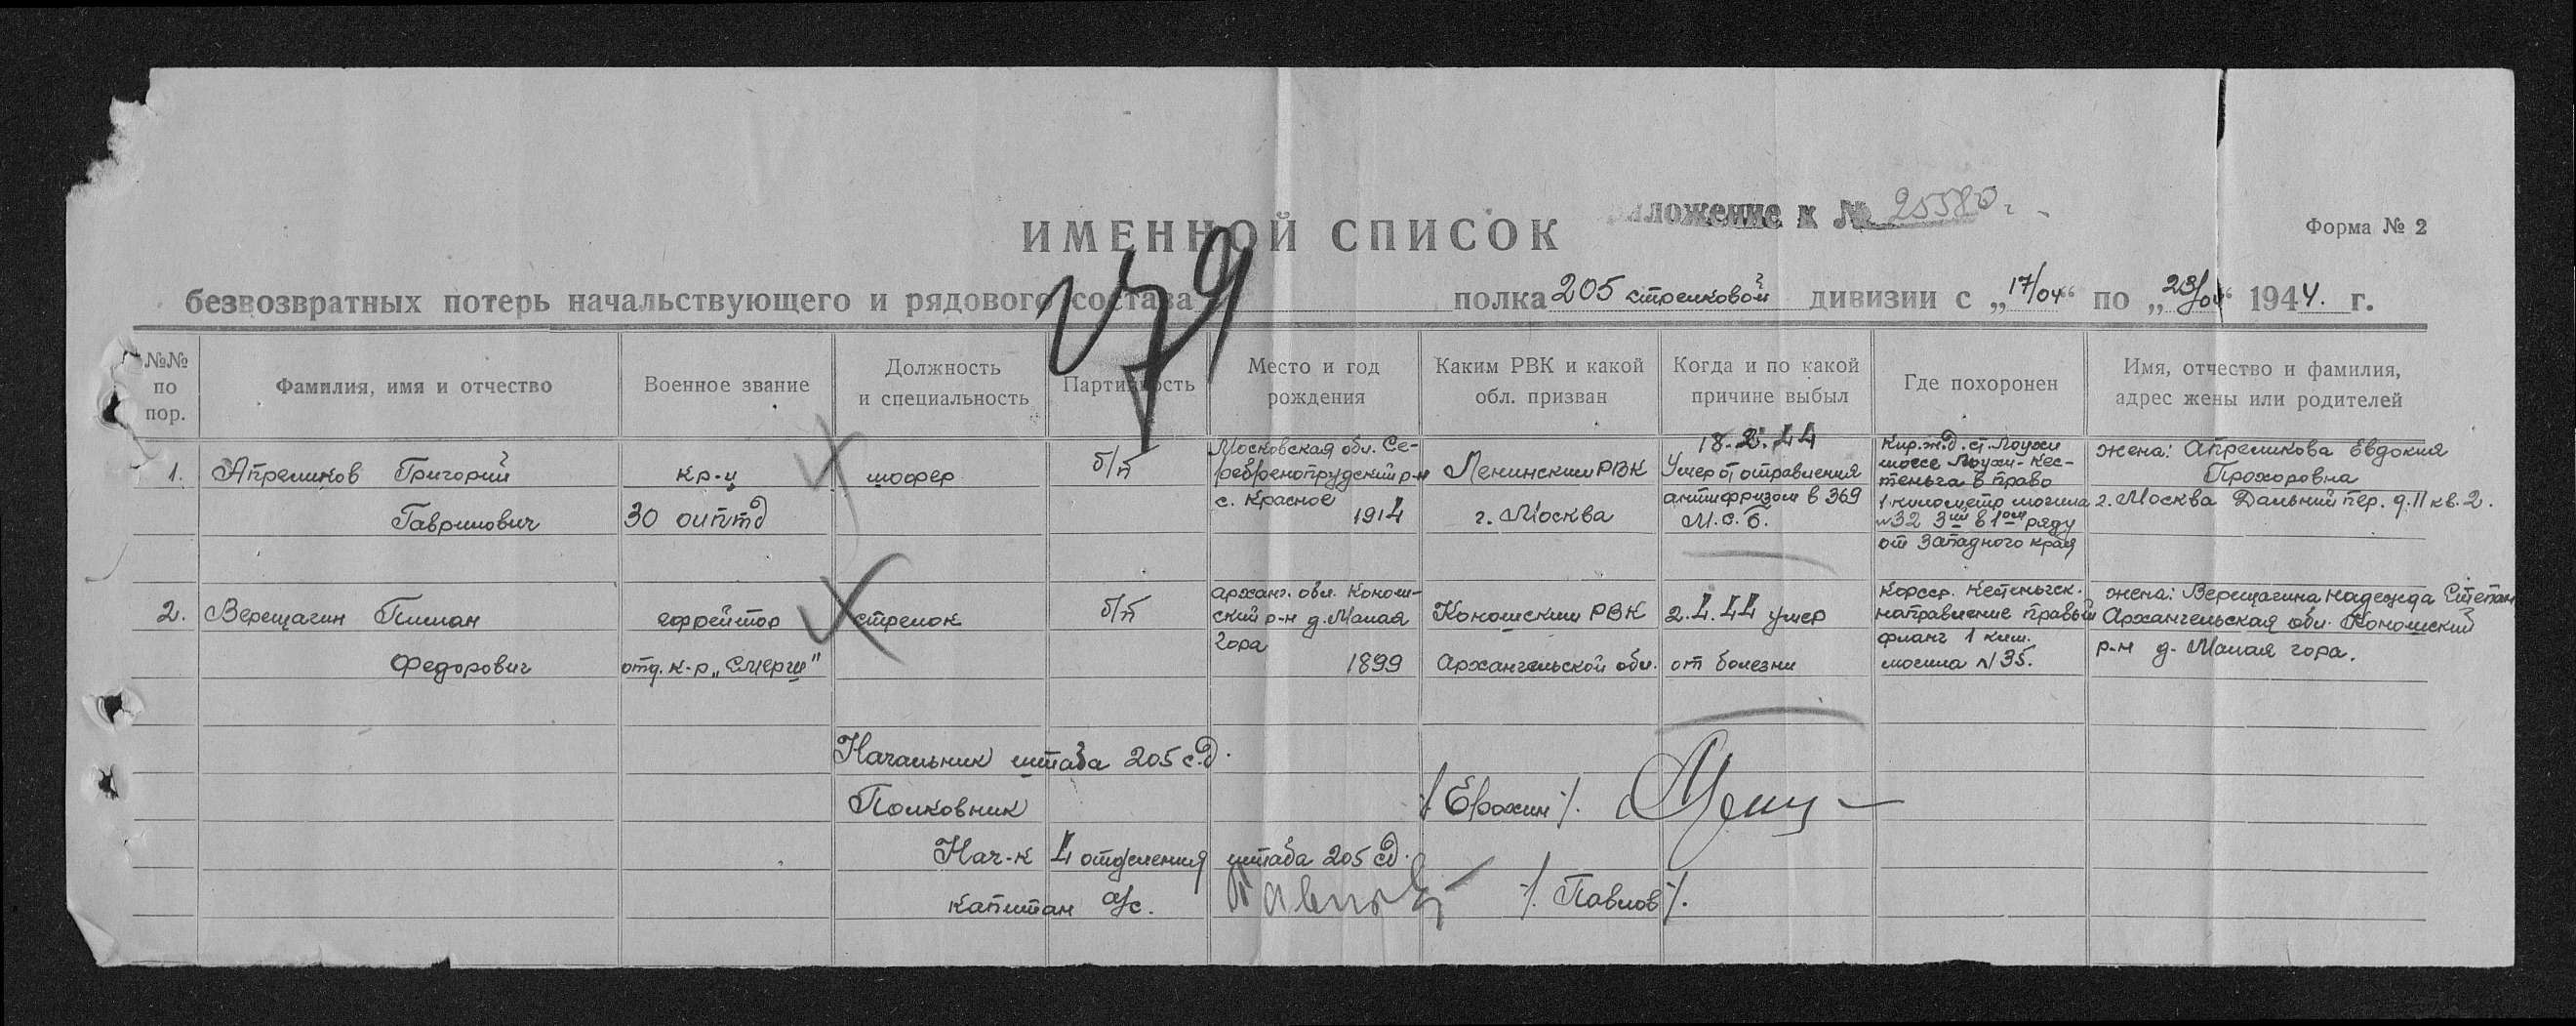 ИМЕННОЙ СПИСОК
иложение к № 25580
Форма № 2
179
безвозвратных потерь начальствующего и рядового состава полка 205 стрелковой дивизии с „17/04“ по „23/04“ 1944. г.
№№ по пор.
Фамилия, имя и отчество
Военное звание
Должность и специальность
Партийность
Место и год рождения
Каким РВК и какой обл. призван
Когда и по какой причине выбыл
Где похоронен
Имя, отчество и фамилия, адрес жены или родителей
1.
Апреликов Григорий
Гаврилович
кр-ц
30 оиптд
шофер
б/п
Московская обл. Се-
ребренопрудский р-н
с. Красное
1914
Ленинским РВК
г. Москва
18.2.44
Умер от отравления
антифризом в 369
М.С.Б.
Кир.ж.д. ст. Лоухи
шоссе Лоухи-Кес-
теньга в право
1 километр могила
№32 3ий в 1ом ряду
от Западного края
жена: Апреликова Евдокия
Прохоровна
г. Москва Дальний пер. д.11 кв.2.
2.
Верещагин Пиман
Федорович
ефрейтор
отд. к-р „Смерш"
стрелок
б/п
Арханг. обл. Конош-
ский р-н д. Малая
Гора
1899
Коношским РВК
Архангельской обл.
2.4.44 умер
от болезни
Кфсср. Кестеньгск.
направление правый
фланг 1 клм.
могила №35.
жена: Верещагина Надежда Степан
Архангельская обл. Коношский
р-н д. Малая гора.
Начальник штаба 205 с.д.
Полковник /Ерохин/.
Нач-к 4 отделения штаба 205 сд.
капитан а/с. Павлов /Павлов/.